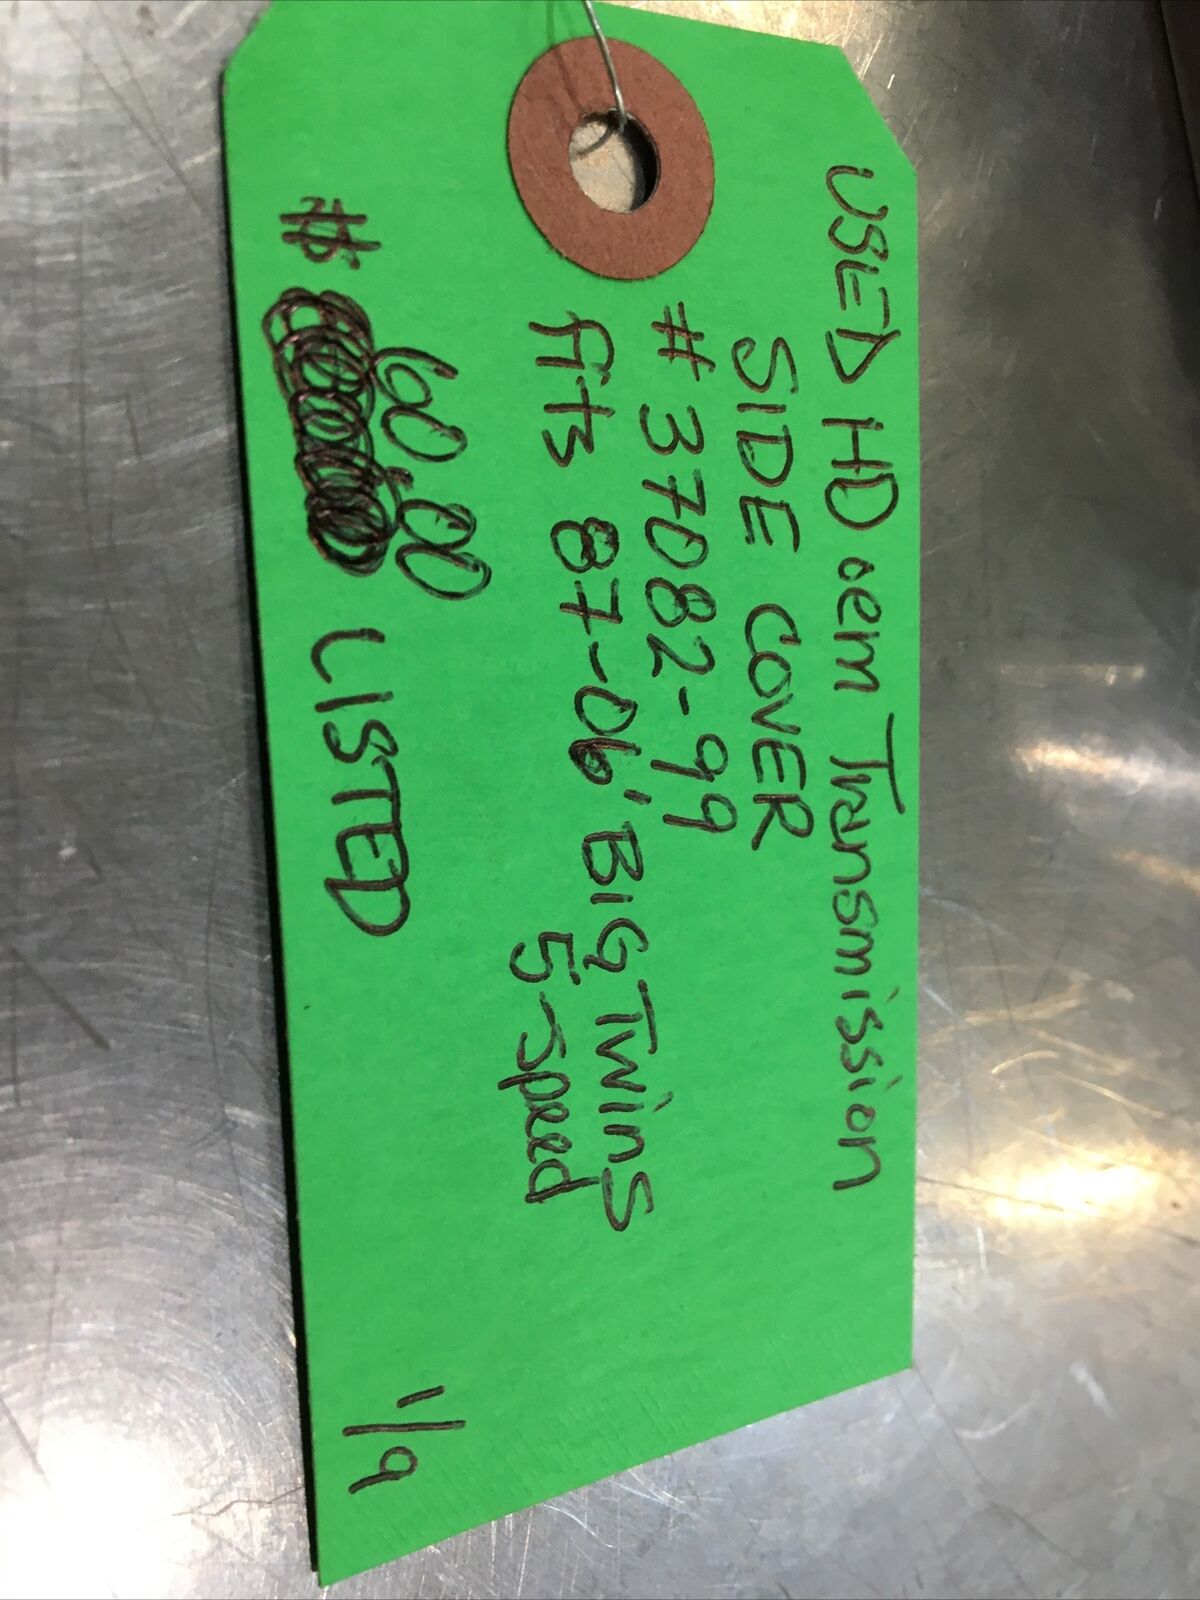 USED HD oem Transmission
SIDE COVER
# 37082-99
fits 87-06' BIG TWINS
5-Speed
60.00
# LISTED
1/9